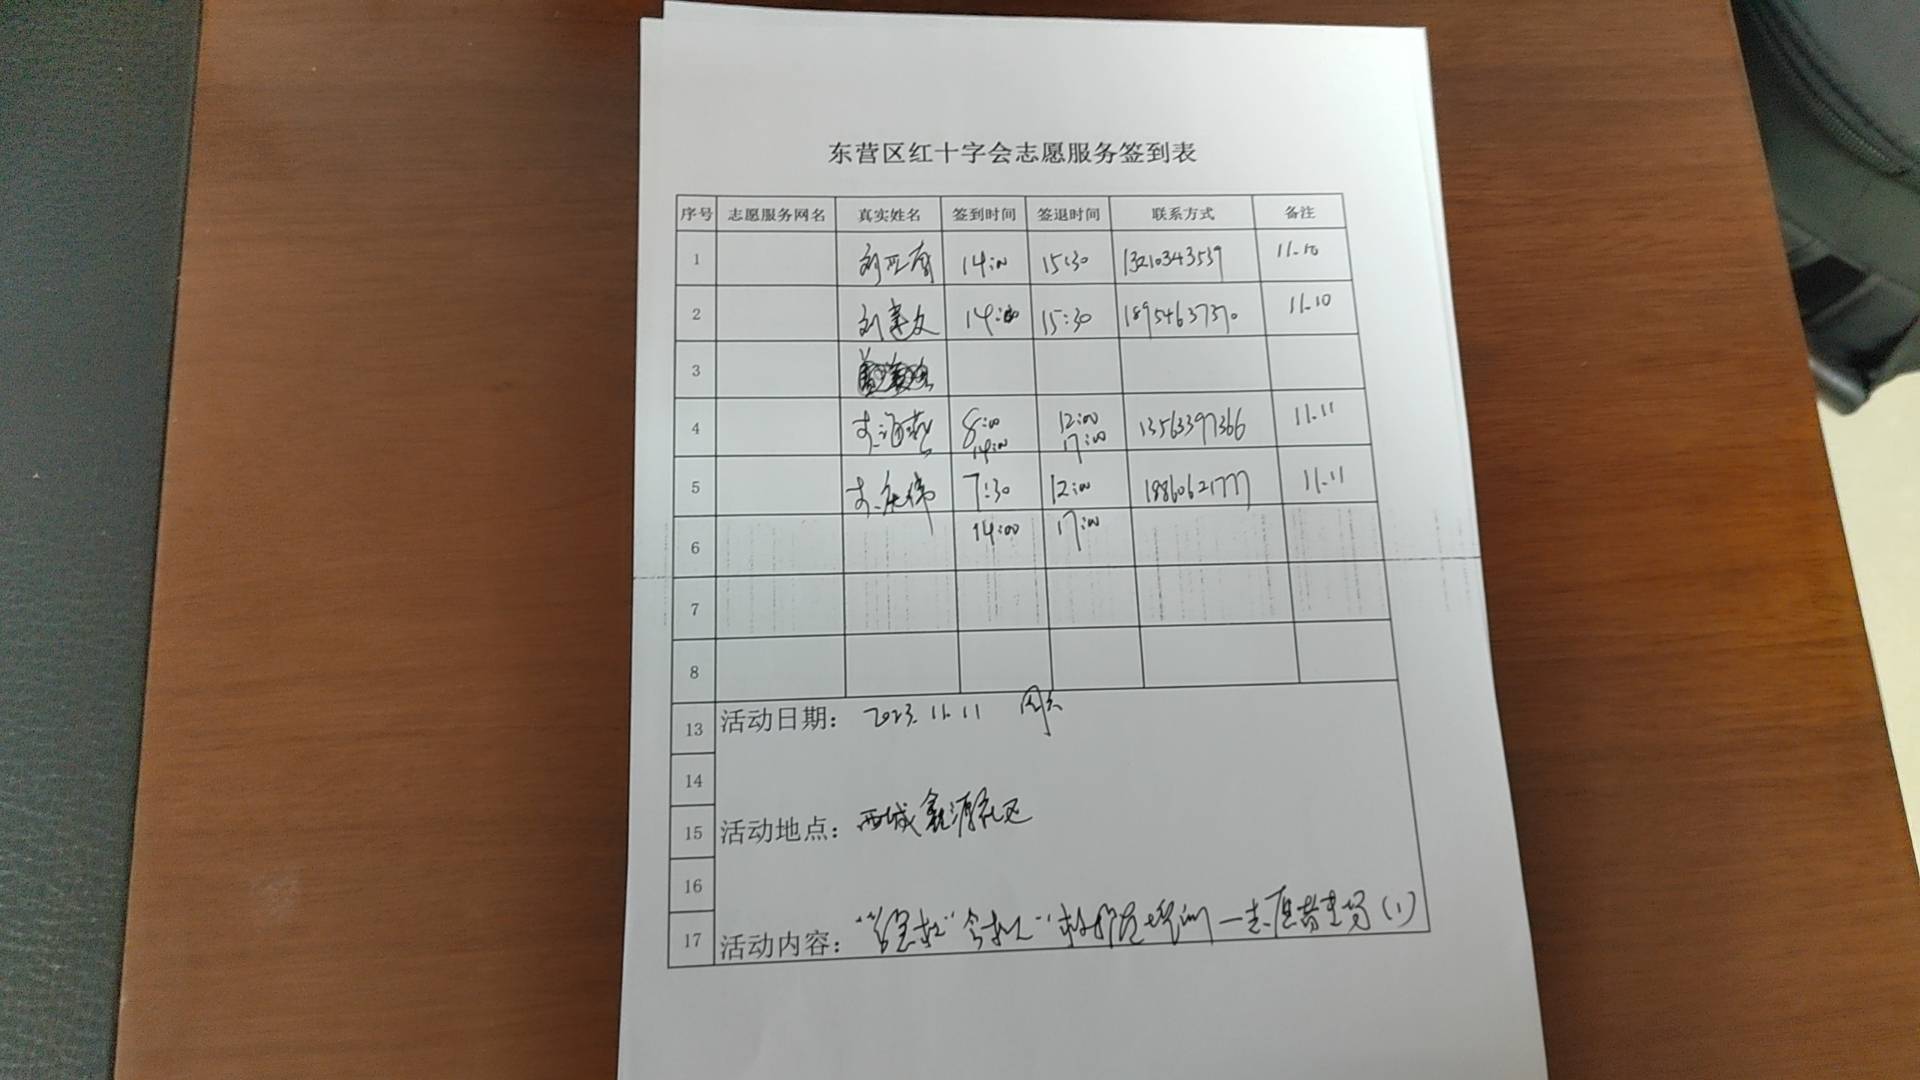 东营区红十字会志愿服务签到表
序号 志愿服务网名 真实姓名 签到时间 签退时间 联系方式 备注
1 14:00 15:30 13210343539 11.10
2 刘建文 14:00 15:30 18954637370 11.10
3
4 8:00 12:00 13563397366 11.11
14:00 17:00
5 7:30 12:00 11.11
6 14:00 17:00
7
8
13 活动日期: 2023.11.11 周六
14
15 活动地点: 西城鑫源社区
16
17 活动内容: 救护员培训—志愿者(1)